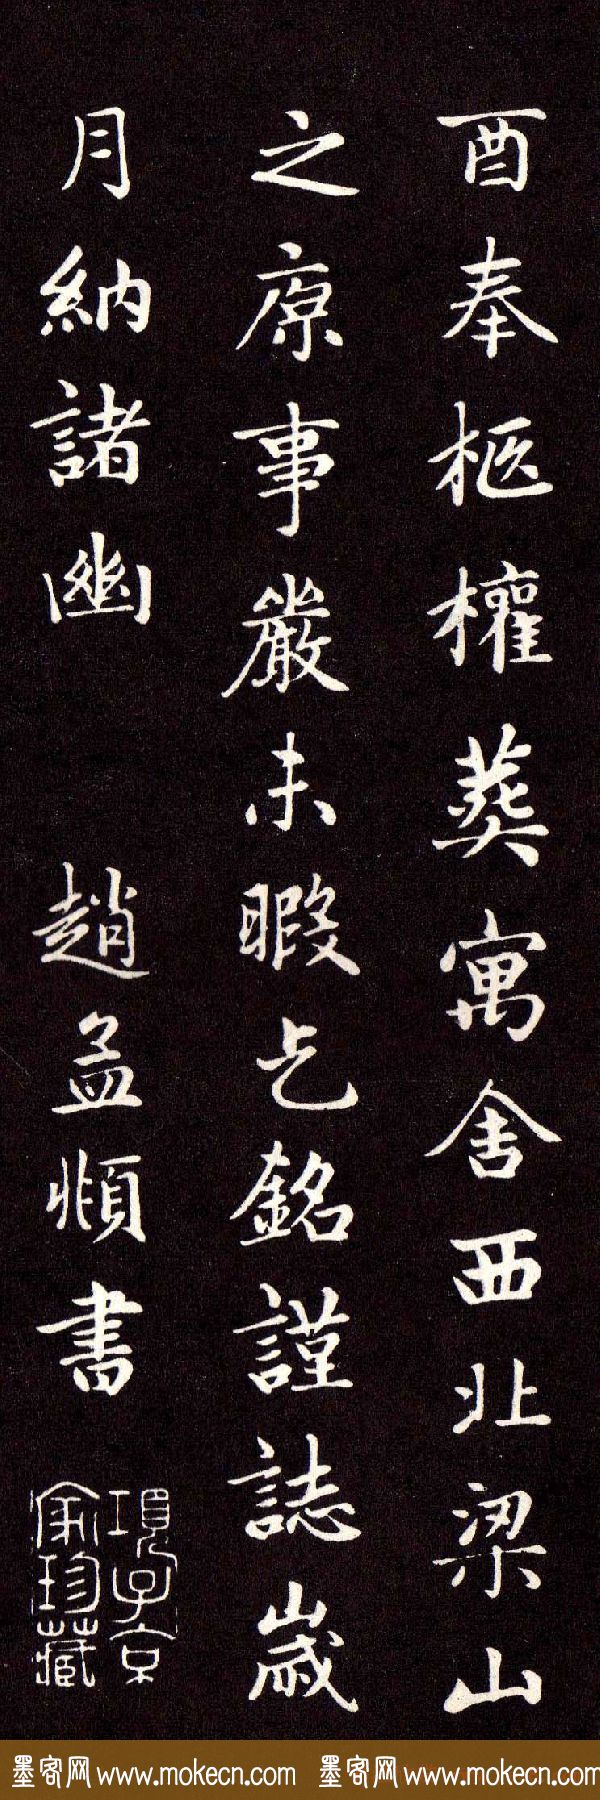 酉奉柩權葬寓舍西北梁山
之原事嚴未暇乞銘謹誌歲
月納諸幽 趙孟頫書
項子京
家珍藏
墨客网 www.mokecn.com 墨客网 www.mokecn.com